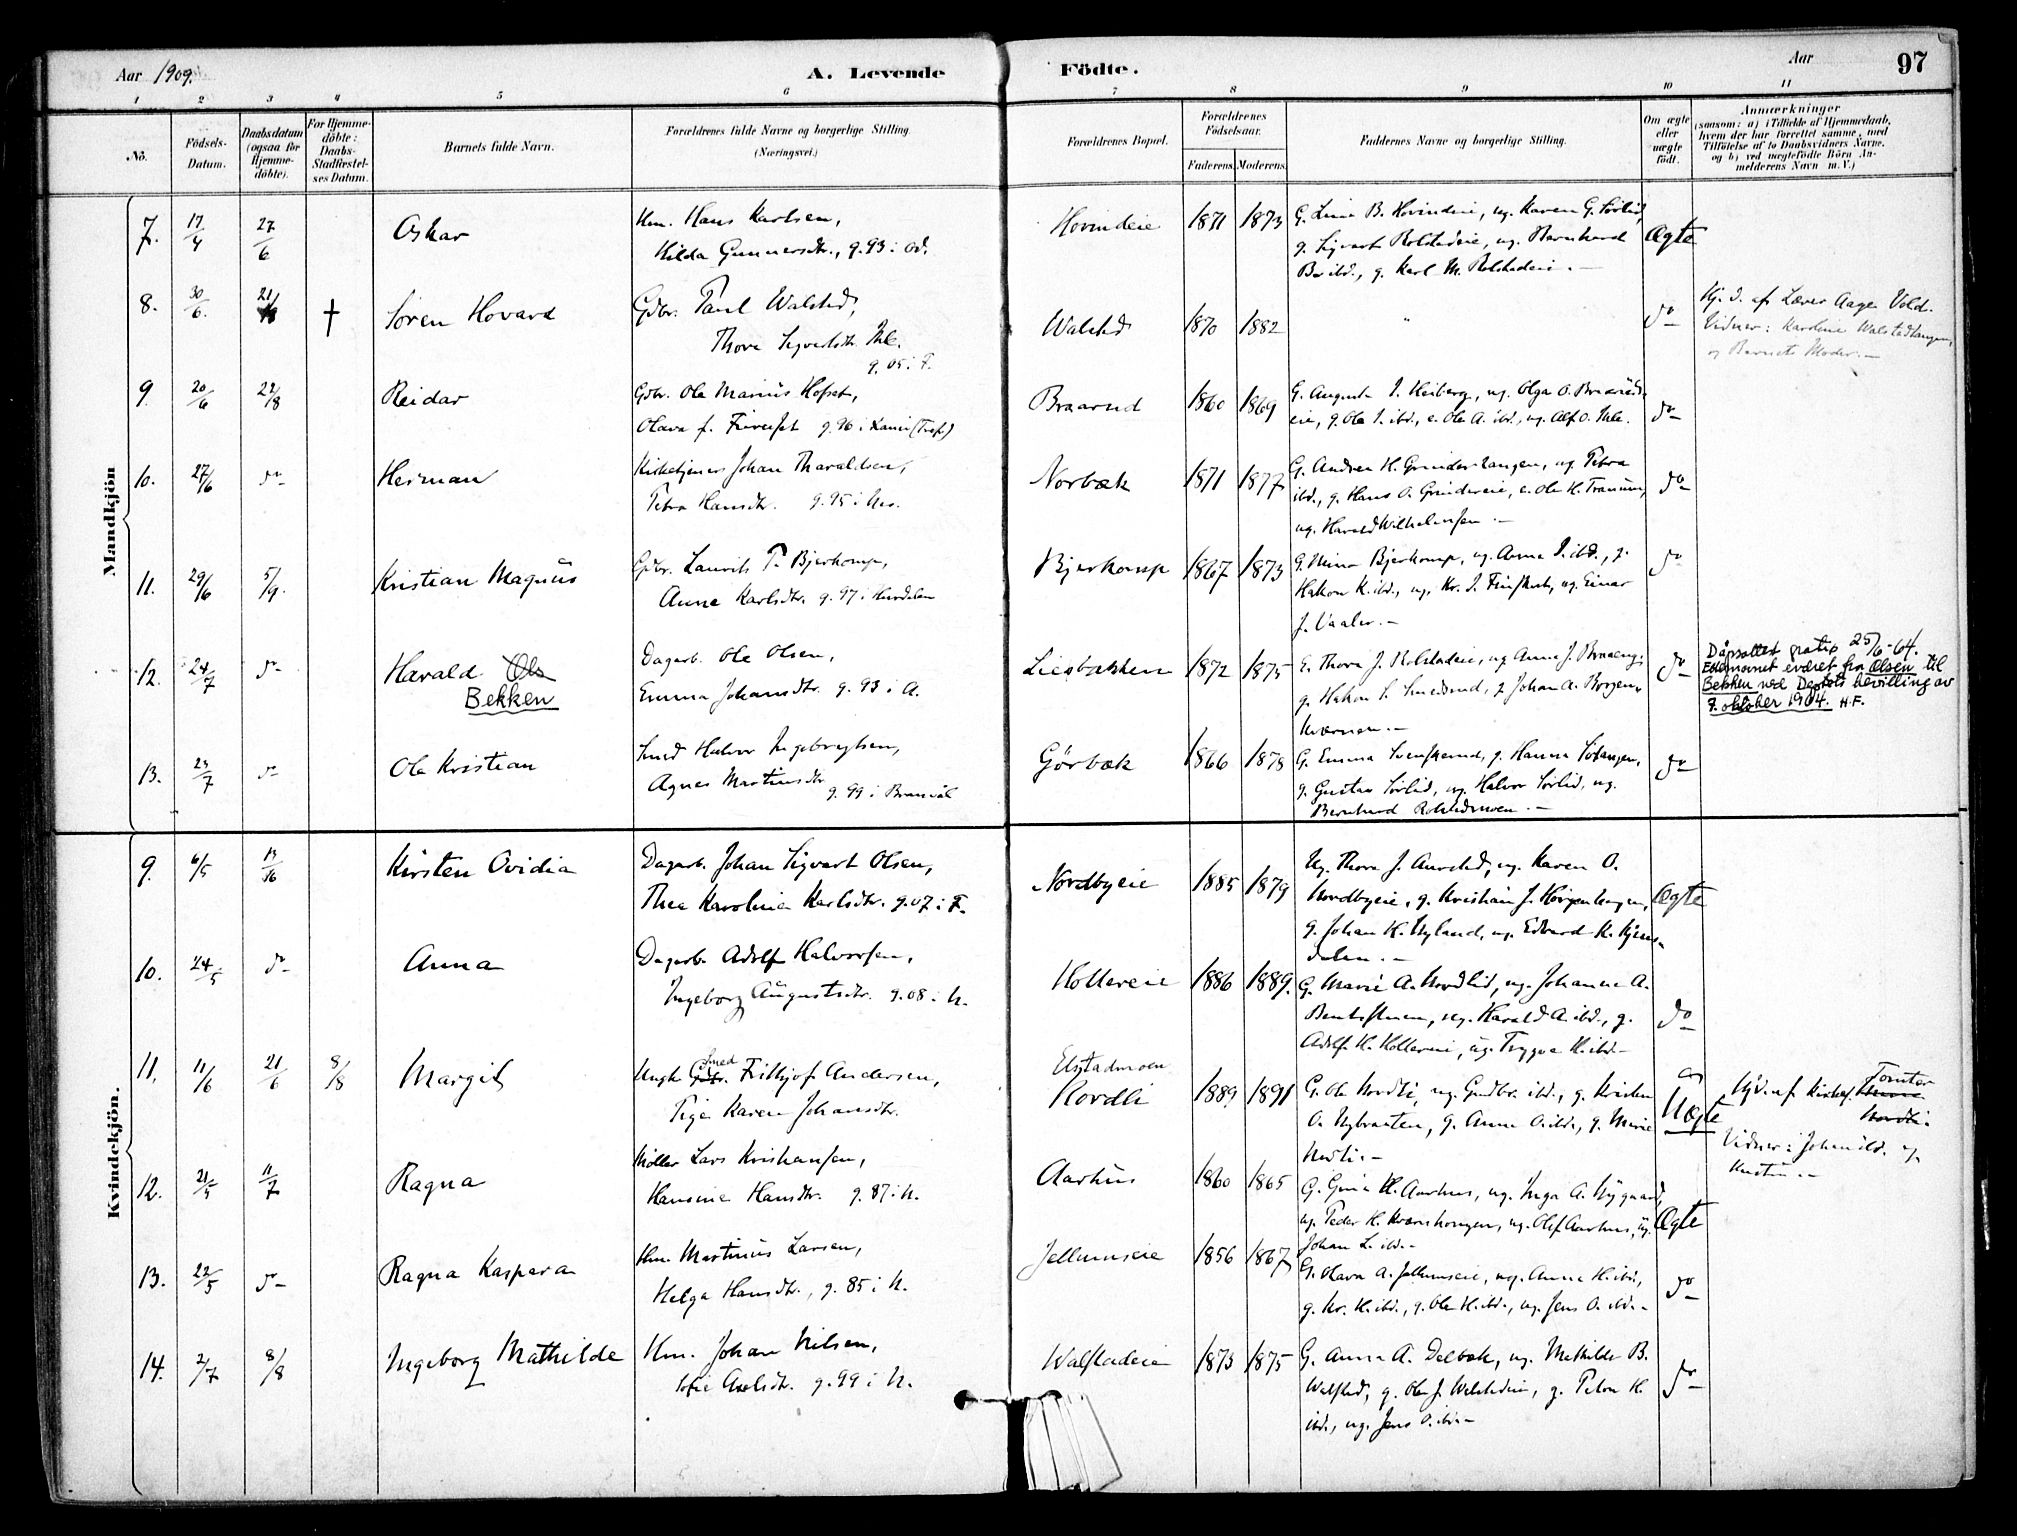 Aar 1909.
A. Levende
Födte.
Aar
97
1 2 3 4 5 6 7 8 9 10 11
No.
Födsels-
Datum.
Daabsdatum
(ogsaa for
Hjemme-
döbte).
For Hjemme-
döbte:
Daabs-
Stadfæstel-
ses Datum.
Barnets fulde Navn.
Forældrenes fulde Navne og borgerlige Stilling.
(Næringsvei.)
Forældrenes Bopæl.
Forældrenes
Födselsaar.
Faderens. Moderens.
Faddernes Navne og borgerlige Stilling.
Om ægte
eller
uægte
födt.
Anmærkninger
(saasom: a) i Tilfælde af Hjemmedaab,
hvem der har forrettet samme, med
Tilföielse af to Daabsvidners Navne,
og b) ved uægtefödte Börn An-
melderens Navn m. V.)
Mandkjön
7. 17/4 27/6 Oskar
Hm. Hans Karlsen,
Hilda Gunnersdtr., g. 93 i Od.
Hovindeie 1871 1873
G. Lina B. Hovindeie, ug. Karen G. Sørlid,
g. Sigvart Rolstadeie, ug. Bernhard
B. ibd., g. Karl M. Rolstadeie.
Ægte
8. 30/6. 21/8 † Søren Hovard
Gdbr. Paul Walstad,
Thora Sigvartsdtr.
g. 05 i F.
Walstad 1870 1882
do
Hj. d. af Lærer Aage Vold.
Vidner: Karoline Walstadlangen,
og Barnets Moder.
9. 20/6 22/8 Reidar
Gdbr. Ole Marius Hofset,
Olava f. g. 96 i
Braarud 1860 1869
G. Augusta I. Heiberg, ug. Olga O. Braarud-
eie, g. Ole I. ibd., e. Ole A. ibd., ug. Alf O.
do
10. 27/6 do Herman
Kirketjener Johan Tharaldsen,
Petra Hansdtr. g. 95 i
Norbæk 1871 1877
G. Andrea H. Grinderhangen, ug. Petra
ibd., g. Hans O. Grindereie, e. Ole H. Tranum,
ug. Harald Wilhelmsen.
do
11. 29/6 5/9. Kristian Magnus
Gdbr. Laurits P. Bjerkomp,
Anne Karlsdtr. g. 97 i Hurdalen
Bjerkomp 1867 1873
G. Mina Bjerkomp, ug. Anna I. ibd., g.
Hakon K. ibd., ug. Kr. J. ug. Einar
J. Vaaler.
do
12. 24/7 do Harald Ols
Bekken
Dagarb. Ole Olsen,
Emma Johansdtr. g. 93 i A.
Liesbakken 1872 1875
E. Thora J. Rolstadeie, ug. Anna J. Braaeng,
g. Hakon S. Smedsrud, g. Johan A. Borgen,
do
Dåpsattest gratis 25/6-64.
Etternavnet endret fra Olsen til
Bekken ved Dep.tets bevilling av
7. oktober 1964. H.F.
13. 23/7 do Ole Kristian
Smed Halvor Ingebregtsen,
Agnes Martinusdtr.
g. 99 i Brandval
Görbæk 1866 1878
G. Emma g. Hanna
g. Gustav Sørlid, ug. Halvor Sørlid, ug.
Bernhard Rolstadmoen.
do
Kvindekjön.
9. 6/5 13/6 Kirsten Ovidia
Dagarb. Johan Sigvart Olsen,
Thea Karoline Karlsdtr. g. 07 i F.
Nordbyeie 1885 1879
Ug. Thora J. Aurstad, ug. Karen O.
Nordbyeie, g. Kristian J.
g. Johan K. Nyland, ug. Edvard K.
dalen.
Ægte
10. 24/5 do Anna
Dagarb. Adolf Halvorsen,
Ingeborg Augustsdtr. g. 08 i N.
Hollereie 1886 1889.
G. Marie A. Nordlid, ug. Johanne A.
ug. Harald A. ibd., g.
Adolf H. Hollereie, ug. Trygve H. ibd.
do
11. 11/6 21/6 8/8 Margit
Smed
Ungk. Gdbr. Fritjof Andersen,
Pige Karen Johansdtr.
Elstadmoen
Nordli 1889 1891
G. Ole Nordli, ug. Gudbr. ibd., g. Kristen
O. Nybraaten, g. Anna O. ibd., g. Marie
Nordli.
Uægte
Hjd. af Kirkes. Tomter
Nordli.
Vidner: Johan ibd. og
12. 21/5 11/7 Ragna
Møller Lars Kristiansen,
Hansine Hansdtr. g. 87 i N.
Aarhus 1860 1865
G. Gina H. Aarhus, ug. Inga A. Nygaard,
ug. Peder H. ug. Olaf Aarhus, ug.
Johan L. ibd.
Ægte
13. 22/5 do Ragna Kaspara
Hm. Martinus Larsen,
Helga Hansdtr., g. 85 i N.
Jellumseie 1856 1867
G. Olava A. Jellumseie, ug. Anna H. ibd.,
g. Kr. H. ibd., g. Ole H. ibd., ug. Jens O. ibd.
do
14. 2/7 8/8 Ingeborg Mathilde
Hm. Johan Nilsen,
Sofie Axelsdtr. g. 99 i N.
Walstadeie 1873 1875
G. Anna A. Delbæk, ug. Mathilde B.
Walstad, g. Ole J. Walstadeie, g. Petra H.
ibd., ug. Jens O. ibd.
do